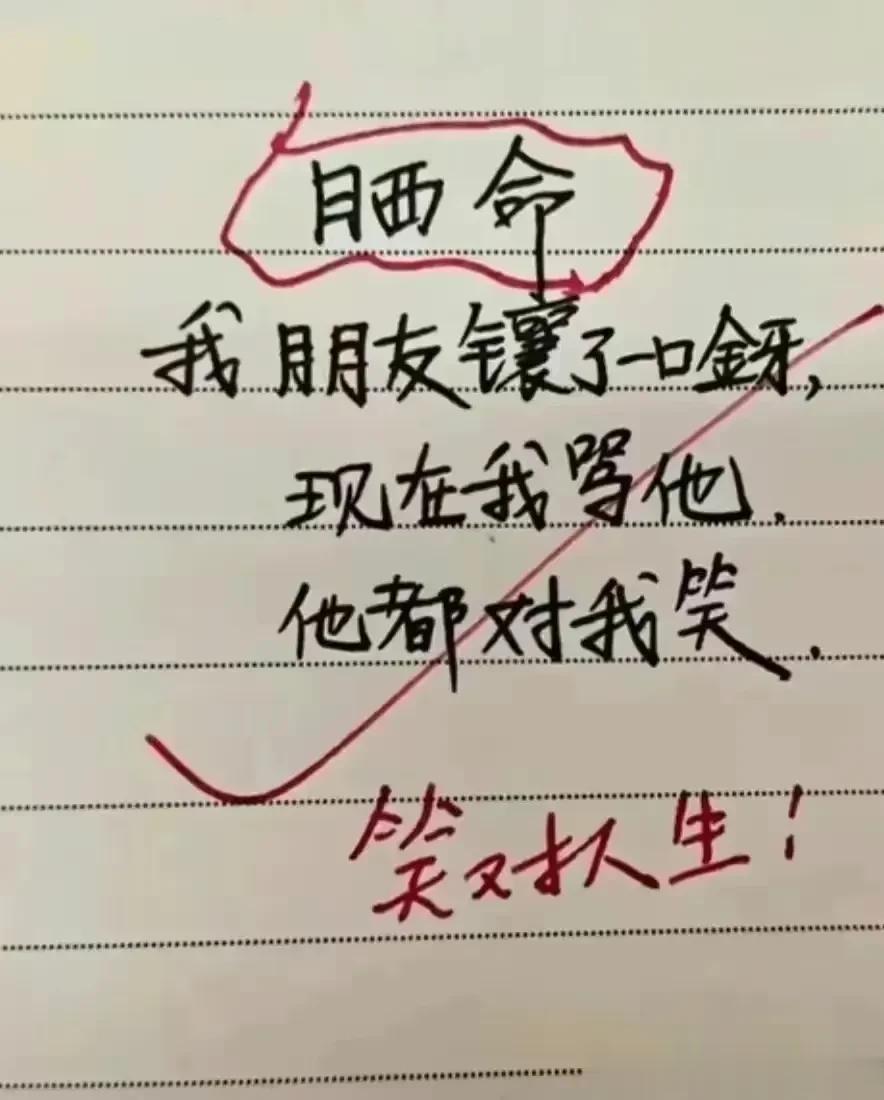 晒命
我朋友镶了一口金牙,
现在我骂他.
他都对我笑.
笑对人生!